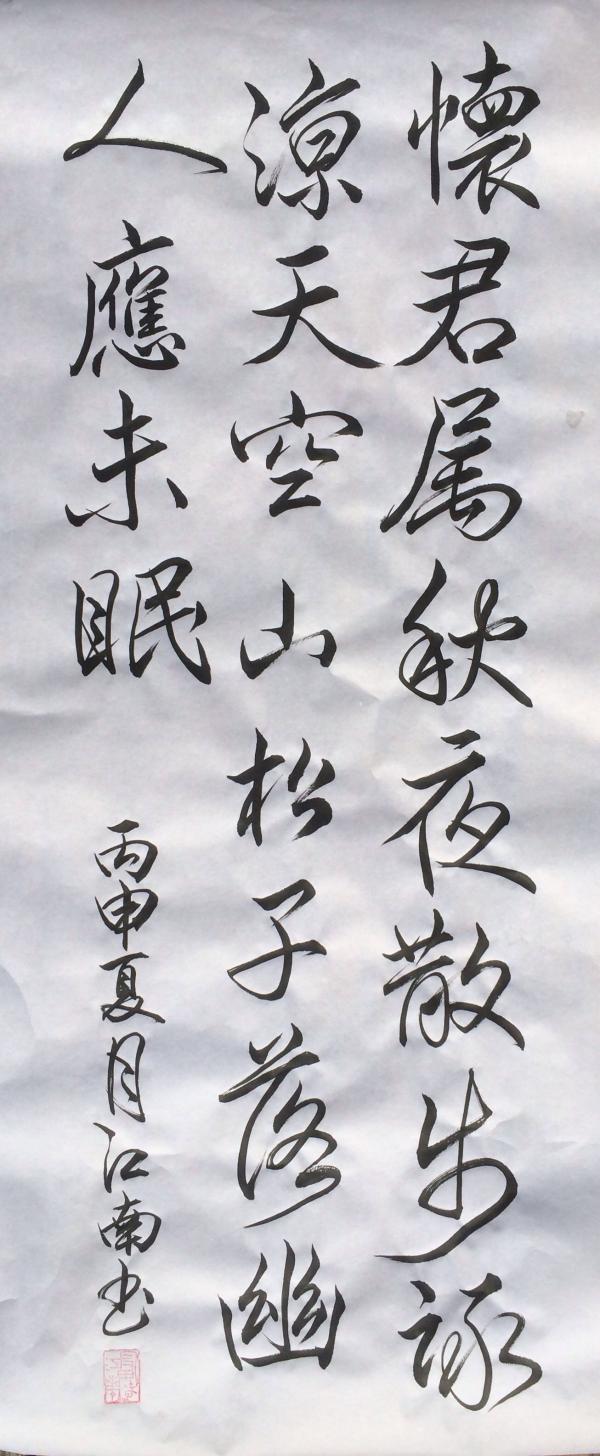 懷君属秋夜散步詠
涼天空山松子落幽
人應未眠
丙申夏月江南书